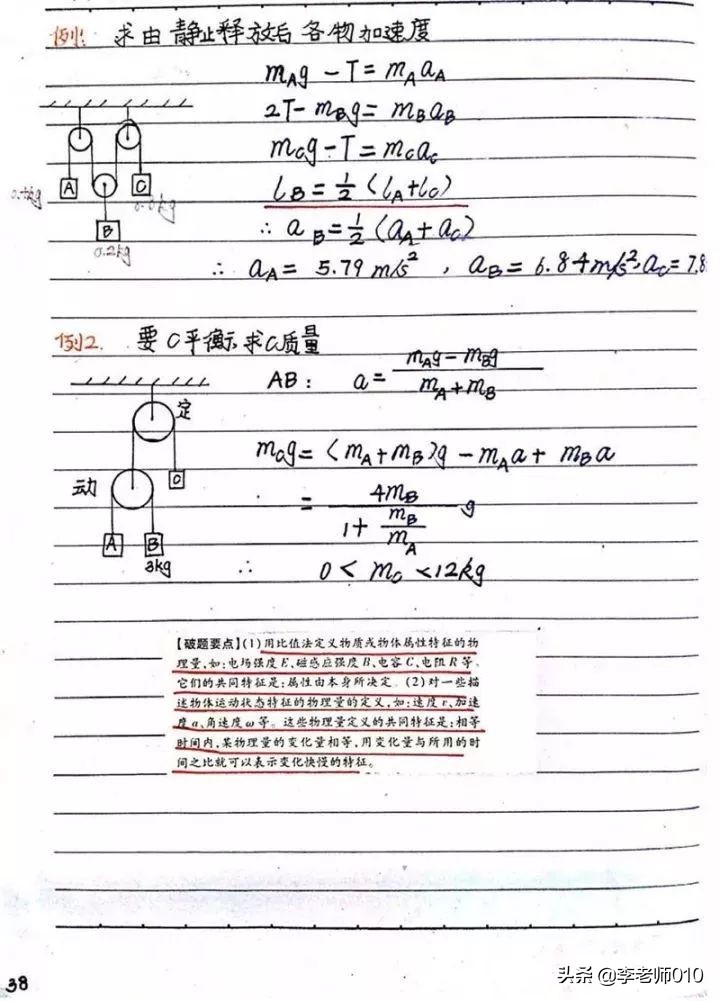 例1: 求由静止释放后各物加速度
mAg - T = mAaA
2T - mBg = mBaB
mCg - T = mCaC
lB = 1/2 (lA + lC)
∴ aB = 1/2 (aA + aC)
∴ aA = 5.79 m/s², aB = 6.84 m/s², aC = 7.8
A
C
B
0.2kg
例2. 要C平衡, 求C质量
AB: a = (mAg - mBg)/(mA + mB)
定
mCg = (mA + mB)g - mAa + mBa
C
动
= 4mB/(1 + mB/mA) g
A
B
3kg
∴ 0 < mC < 12kg
【破题要点】(1)用比值法定义物质或物体属性特征的物
理量,如:电场强度E、磁感应强度B、电容C、电阻R等。
它们的共同特征是:属性由本身所决定。(2)对一些描
述物体运动状态特征的物理量的定义,如:速度v、加速
度a、角速度ω等。这些物理量定义的共同特征是:相等
时间内,某物理量的变化量相等,用变化量与所用的时
间之比就可以表示变化快慢的特征。
38
头条 @李老师010